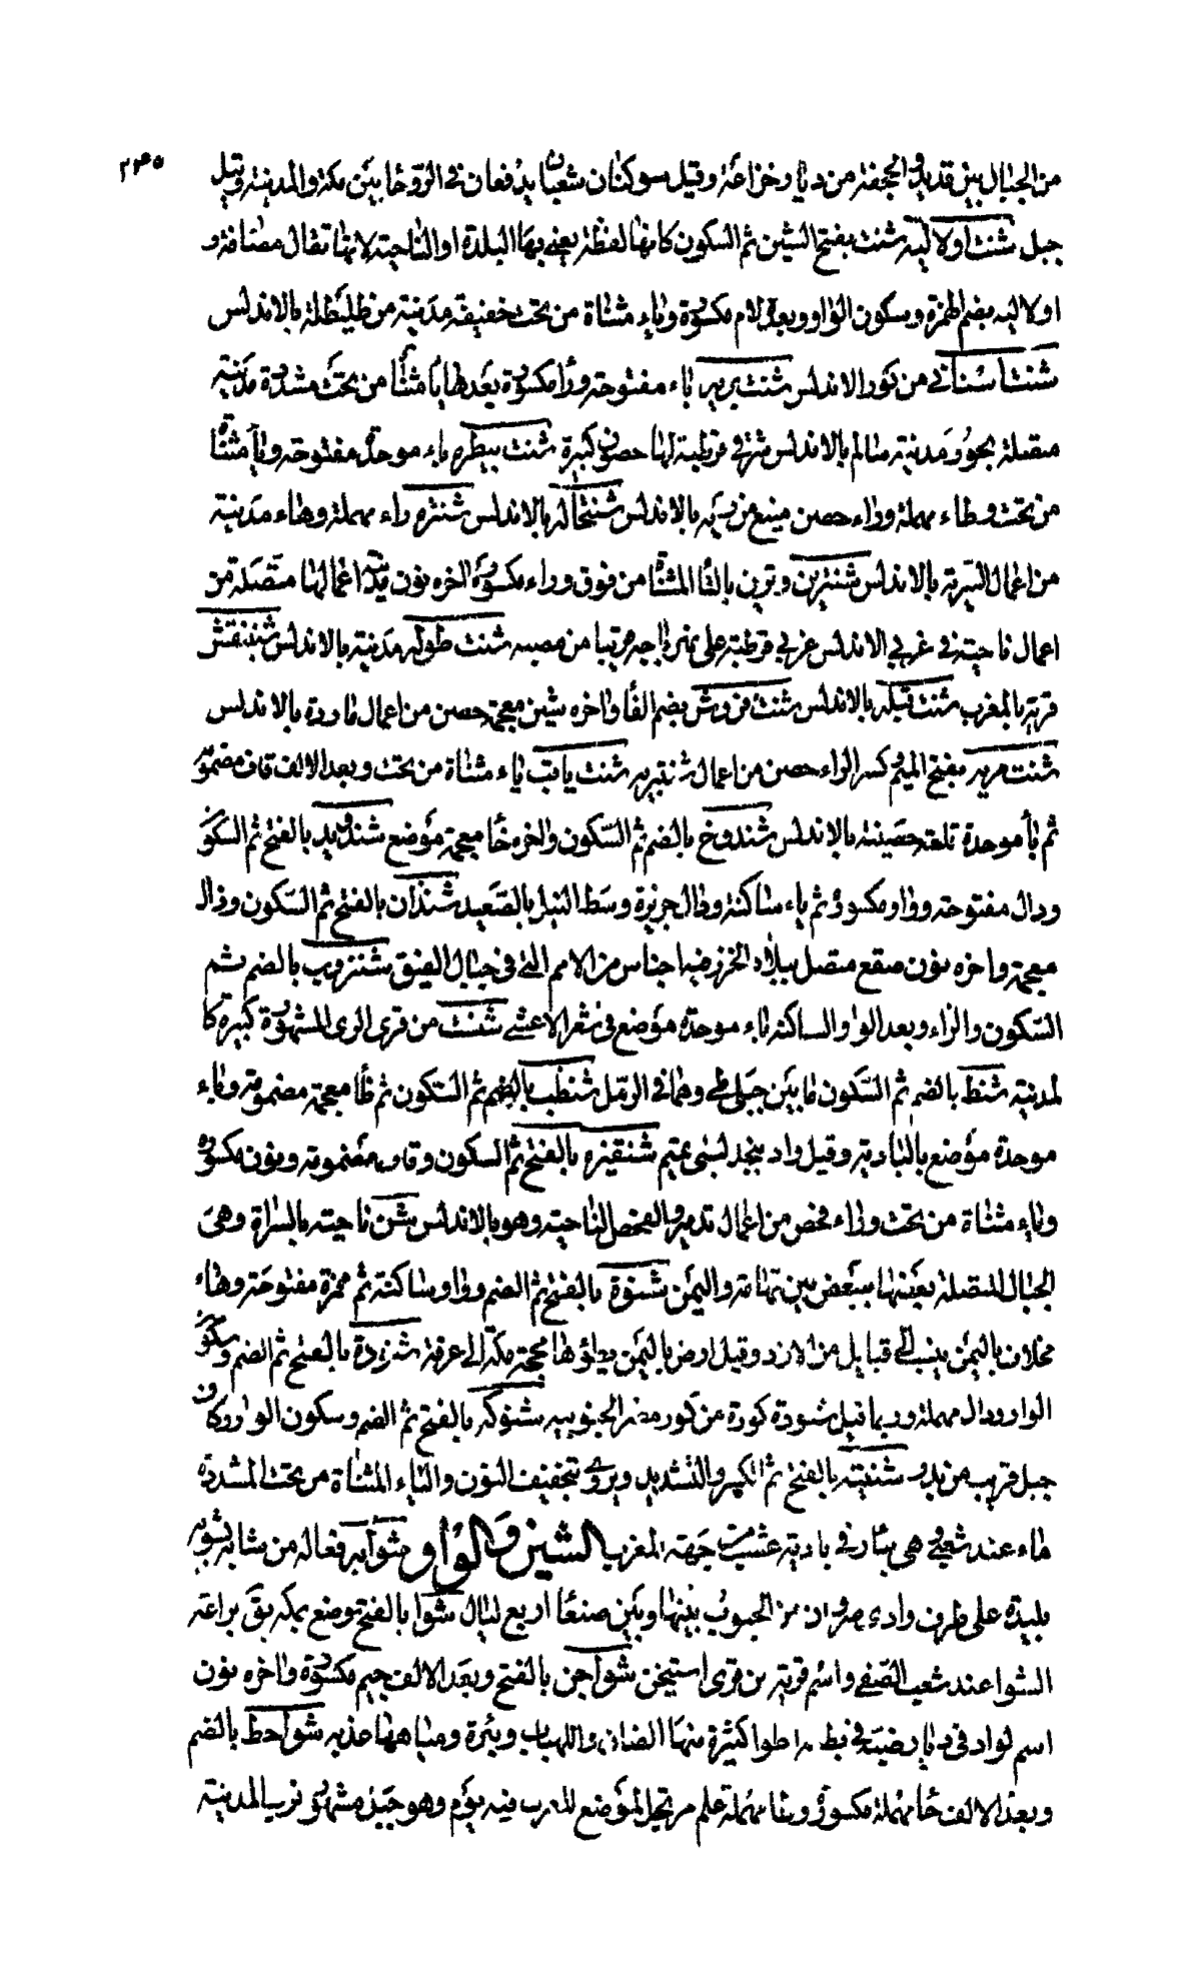 ٢٣٥
من الجبال بين قديد والجحفة من ديار خزاعة وقيل سوكنان شعبان يدفعان في الروحا بين مكة والمدينة وقيل
جبل شنت اولاليه شنت بفتح الشين ثم السكون كانها لفظة يعنى بها البلدة او الناحية لانها تقال مضافة و
اولاليه بضم الهمزة وسكون الواو وبعد لام مكسورة وياء مثناة من تحت خفيفة مدينة من طليطلة بالاندلس
شنتاستاني من كور الاندلس شنت برير ياء مفتوحة ورا مكسورة بعدها يا مثناة من تحت مشددة مدينة
متصلة بحوز مدينة سالم بالاندلس شرقي قرطبة لها حصون كبيرة شنت بيطره باء موحدة مفتوحة ويا مثناة
من تحت وطاء مهملة وراء حصن منيع من بالاندلس شنتجاله بالاندلس شنتره راء مهملة وهاء مدينة
من اعمال بالاندلس شنترين وترين بالتا المثناة من فوق وراء مكسورة اخره نون مدينة اعمالها متصلة من
اعمال ناحية في غربي الاندلس غربي قرطبة على نهر باجه قريبا من مصبه شنت طوله مدينة بالاندلس شنبنقش
قرية بالمغرب شنت قيله بالاندلس شنت فروش بضم الفا واخره شين معجمة حصن من اعمال ماردة بالاندلس
شنت مريه بفتح الميم وكسر الراء حصن من اعمال شنتبريه شنت ياقب ياء مثناة من تحت وبعد الالف قاف مضمومة
ثم با موحدة قلعة حصينة بالاندلس شندوخ بالضم ثم السكون واخره خا معجمة موضع شندويد بالفتح ثم السكون
ودال مفتوحة وواو مكسورة ثم ياء ساكنة ودال جزيرة وسط النيل بالصعيد شنذان بالفتح ثم السكون وذال
معجمة واخره نون صقع متصل ببلاد الخزر فيه اجناس من الامم التي في جبال القبق شنزوب بالضم ثم
السكون والزاء وبعد الواو الساكنة باء موحدة موضع في شعر الاعشى شنست من قرى الرى المشهورة كبيرة كا
لمدينة شنط بالضم ثم السكون ما بين جبلى طى وهما في الرمل شنظب بالضم ثم السكون ثم ظا معجمة مضمومة وباء
موحدة موضع بالبادية وقيل واد بنجد لبنى تميم شنقنيره بالفتح ثم السكون وقاف مضمومة ونون مكسورة
وياء مثناة من تحت وراء فحص من اعمال تدمير والفحص الناحية وهو بالاندلس شن ناحية بالسراة وهى
الجبال المتصلة بعضها ببعض بين تهامة واليمن شنوة بالفتح ثم الضم وواو ساكنة ثم همزة مفتوحة وهاء
مخلاف باليمن ينسب الى قبايل من الازد وقيل ارض باليمن محجة مكة الى عرفة شنودة بالفتح ثم الضم وسكون
الواو ودال مهملة وربما قيل شبودة كورة من كور مصر الجنوبيه شنوكه بالفتح ثم الضم وسكون الواو وكاف
جبل قريب من بدر شنيه بالفتح ثم الكسر والتشديد ويروى بتخفيف النون والياء المثناة من تحت المشددة
ماء عند شعبى وهى بيار في بادية جهة المغرب الشين والواو شوابه فعاله من شابه يشوبه
بليدة على طرف وادى ضروان من الجنوب بينها وبين صنعا اربع ليال شوا بالفتح موضع بمكة براعة
الشوا عند شعب الصفى واسم قرية من قرى استيخن شواجن بالفتح وبعد الالف جيم مكسورة واخره نون
اسم لواد في ديار ضبة في بطن اطوا كثيرة منها اللهاب وبئرة ومياهها عذبه شواحط بالضم
وبعد الالف حا مهملة مكسورة وطا مهملة علم مرتجل لموضع للعرب فيه يوم وهو جبل مشهور قرب المدينة